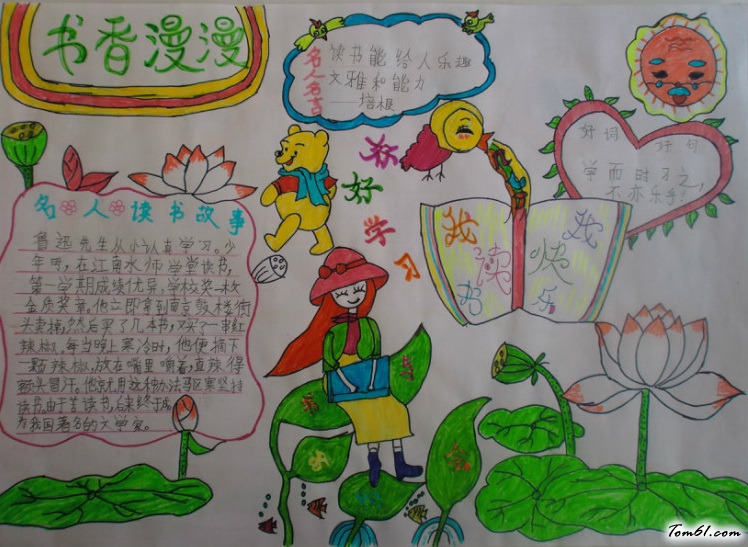 书香漫漫
名人名言
读书能给人乐趣
文雅和能力
——培根
好词 好句
学而时习之,
不亦乐乎!
好好学习
名人读书故事
鲁迅先生从小认真学习。少
年时,在江南水师学堂读书,
第一学期成绩优异,学校奖一枚
金质奖章。他立即拿到南京鼓楼街
头卖掉,然后买了几本书,又买了一串红
辣椒。每当晚上寒冷时,他便摘下
一颗辣椒,放在嘴里嚼着,直辣得
额头冒汗。他就用这种办法驱寒坚持
读书。由于苦读书,后来终于成
为我国著名的文学家。
我读书
我快乐
Tom61.com